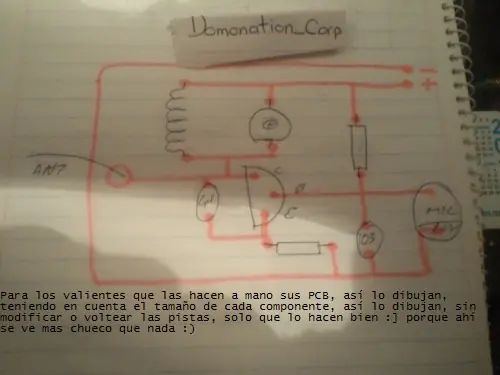 Domonation_Corp
-
+
ANT
C
B
E
MIC
Para los valientes que las hacen a mano sus PCB, así lo dibujan,
teniendo en cuenta el tamaño de cada componente, asi lo dibujan, sin
modificar o voltear las pistas, solo que lo hacen bien :] porque ahí
se ve mas chueco que nada :)